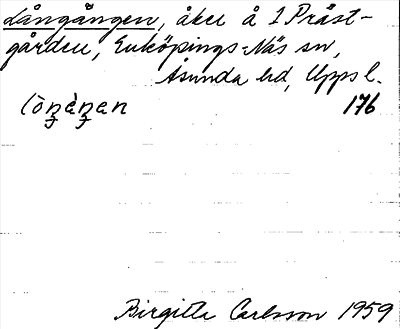 Långången, åker å 1 Präst-
gården, Enköpings-Näs sn,
Åsunda hd, Upps l.
lòŋàŋen 176
Birgitta Carlsson 1959